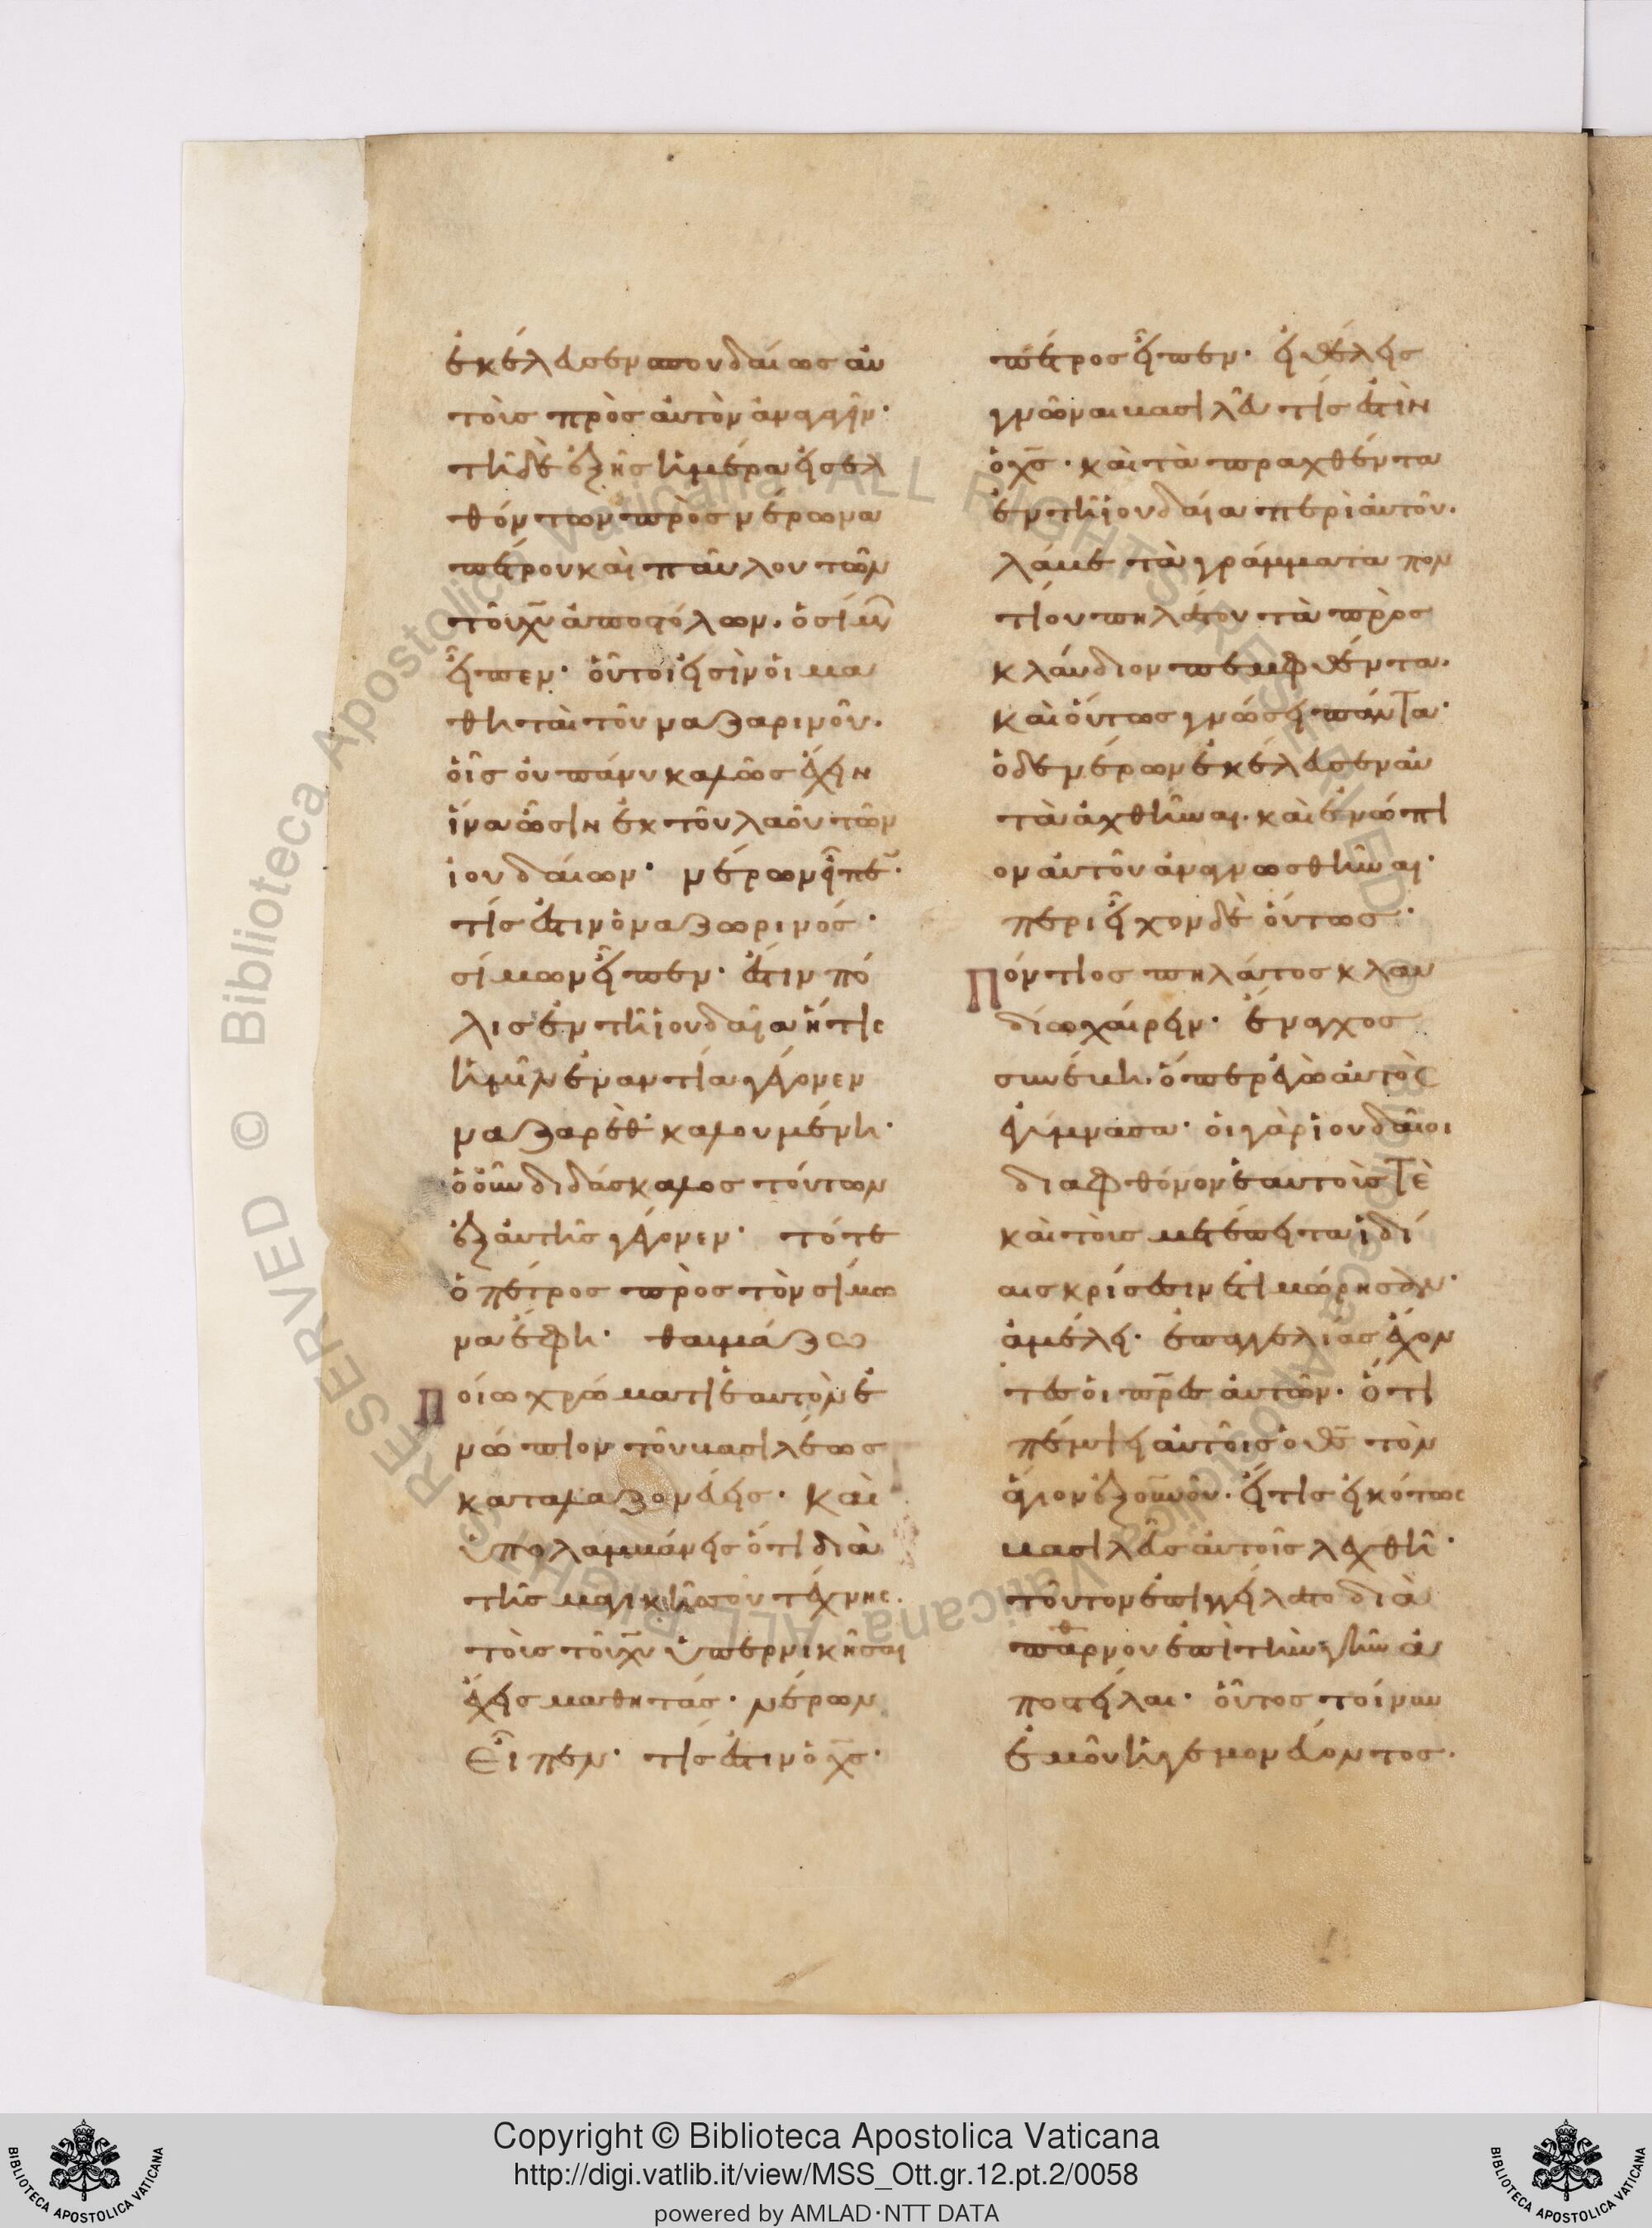 ἐκέλευσεν σπουδαίως αὐ
τοὺς πρὸς αὐτὸν ἀναγαγεῖν·
τῆ δὲ ἑξῆς ἡμέρα εἰσελ
θόντων πρὸς νέρωνα
πέτρου καὶ παύλου τῶν
τοῦ χυ ἀποστόλων. ὁ σίμων
εἶπεν· οὗτοι εἰσὶν οἱ μα
θηταὶ τοῦ ναζαρινοῦ.
οἷς οὐ πάνυ καλῶς ἔχειν
ἵνα ὦσιν ἐκ τοῦ λαοῦ τῶν
ἰουδαίων· νέρων εἶπε·
τίς ἐστιν ὁ ναζωρινός·
σίμων εἶπεν· ἐστιν πό
λις ἐν τῆ ἰουδαία ἥτις
ἡμῖν ἐναντία γέγονεν
ναζαρὲθ καλουμένη·
ὁ οὖν διδάσκαλος τούτων
ἐξ αὐτῆς γέγονεν· τότε
ὁ πέτρος πρὸς τὸν σίμω
να ἔφη· θαυμάζω
ποίω χρώματι ἑαυτὸν ἐ
νώπιον τοῦ βασιλέως
καταλαζονεύεις· καὶ
ὑπολαμβάνεις ὅτι διὰ
τῆς μαγικῆς σου τέχνης.
τοὺς τοῦ χυ ὑπερνικῆσαι
ἔχεις μαθητάς· νέρων
εἶπεν· τίς ἐστιν ὁ χς·
πέτρος εἶπεν· εἰ θέλεις
γνῶναι βασιλεῦ τίς ἐστιν
ὁ χς· καὶ τὰ πραχθέντα
ἐν τῆ ἰουδαία περὶ αὐτοῦ.
λάβε τὰ γράμματα πον
τίου πηλάτου τὰ πρὸς
κλαύδιον πεμφθέντα.
καὶ οὕτως γνώσει πάντα·
ὁ δὲ νέρων ἐκέλευσεν αὐ
τὰ ἀχθῆναι. καὶ ἐνώπι
ον αὐτοῦ ἀναγνωσθῆναι·
περιεῖχον δὲ οὕτως·
Πόντιος πηλάτος κλαυ
δίω χαίρειν· ἔναγχος
συνέβη. ὅπερ ἐγὼ αὐτὸς
ἐγύμνασα· οἱ γὰρ ἰουδαῖοι
διὰ φθόνον ἑαυτούς τὲ
καὶ τοὺς μετέπειτα ἰδί
αις κρίσεσιν ἐτιμώρησαν·
ἀμέλει· ἐπαγγελίας ἔχον
τες οἱ πρες αὐτῶν· ὅτι
πέμψει αὐτοῖς ὁ θς τὸν
ἅγιον ἐξ οὐνοῦ. εἵτις εἰκότως
βασιλεὺς αὐτοῖς λεχθῆ·
τοῦτον ἐπιγγείλατο διὰ
παρθένου ἐπὶ τὴν γῆν ἀ
ποστεῖλαι· οὗτος τοίνυν
ἐμοῦ ἡγεμονεύοντος.
Copyright © Biblioteca Apostolica Vaticana
http://digi.vatlib.it/view/MSS_Ott.gr.12.pt.2/0058
powered by AMLAD·NTT DATA